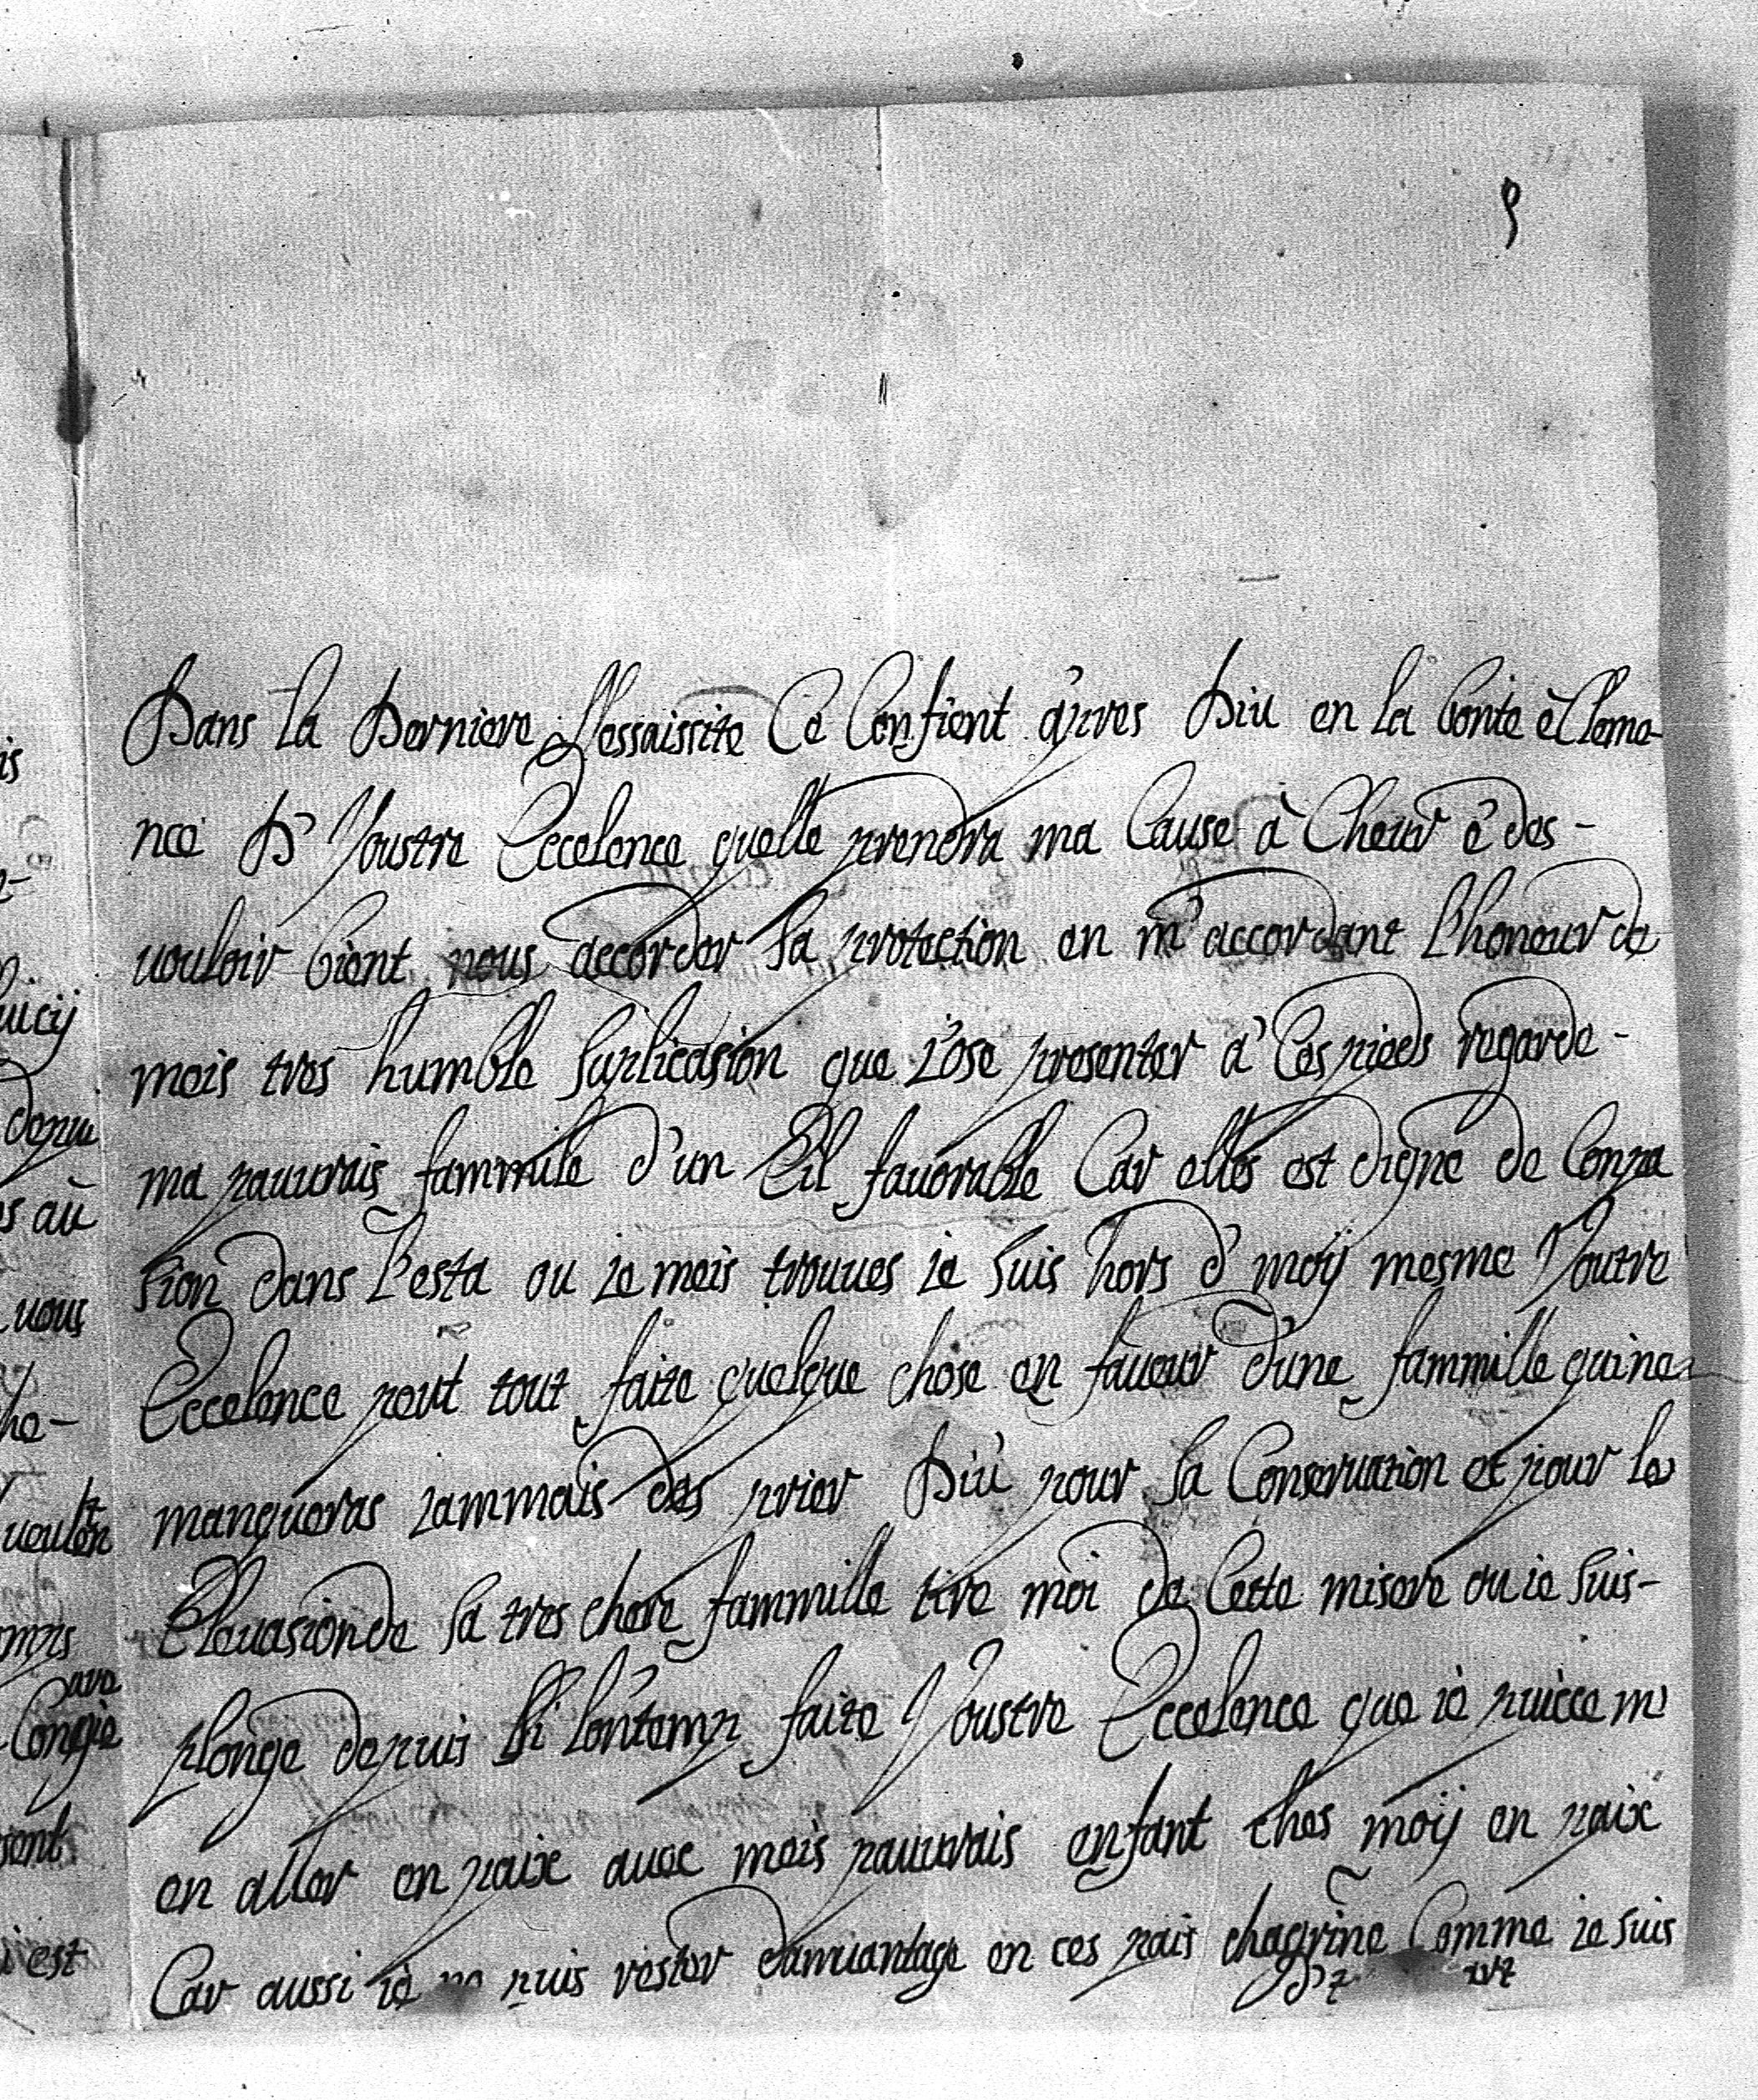 Dans La Derniere Nessaissite Ce Confient apres Diu en La bonte è Cleme-
nce D' Voustre Eccelence quelle prendra ma Cause à Cheur é des-
vouloir bient nous accorder sa protection en m'accordant L'honeur de
meis tres humble Suplicasion que J'ose presenter a' Ces pieds regarde-
ma pauvrais fammile d'un Eil favorable Car elles est digne de Conpa
sion dans L'esta ou ie meis trouues ie suis hors d' moÿ mesme Voutre
Eccelence peut tout faite quelque chose en faueur d'une fammille quine
manqueras jammais des prier Diu pour sa Conservation et pour les
Elevasion de sa tres chere fammille tire moi de Cette misere ou ie suis-
plonge depuis Si lontemp faite Voustre Eccelence que ie puicce m'
en aller en paix avec meis pauvrais enfant ches moÿ en paix
Car aussi ie ne puis rester damvantage en ces pais chagrine Comme ie suis